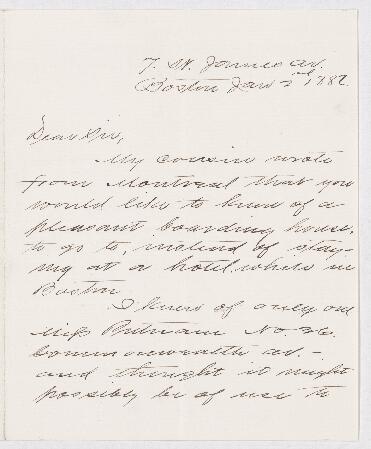 7. St. James av.
Boston Jan 2nd 1882
Dear Sir,
My cousin wrote
from Montreal that you
would like to know of a
pleasant boarding house,
to go to, instead of stay-
ing at a hotel, while in
Boston
I know of only one
Miss Putnam No. 36.
Commonwealth av. -
and thought it might
possibly be of use to